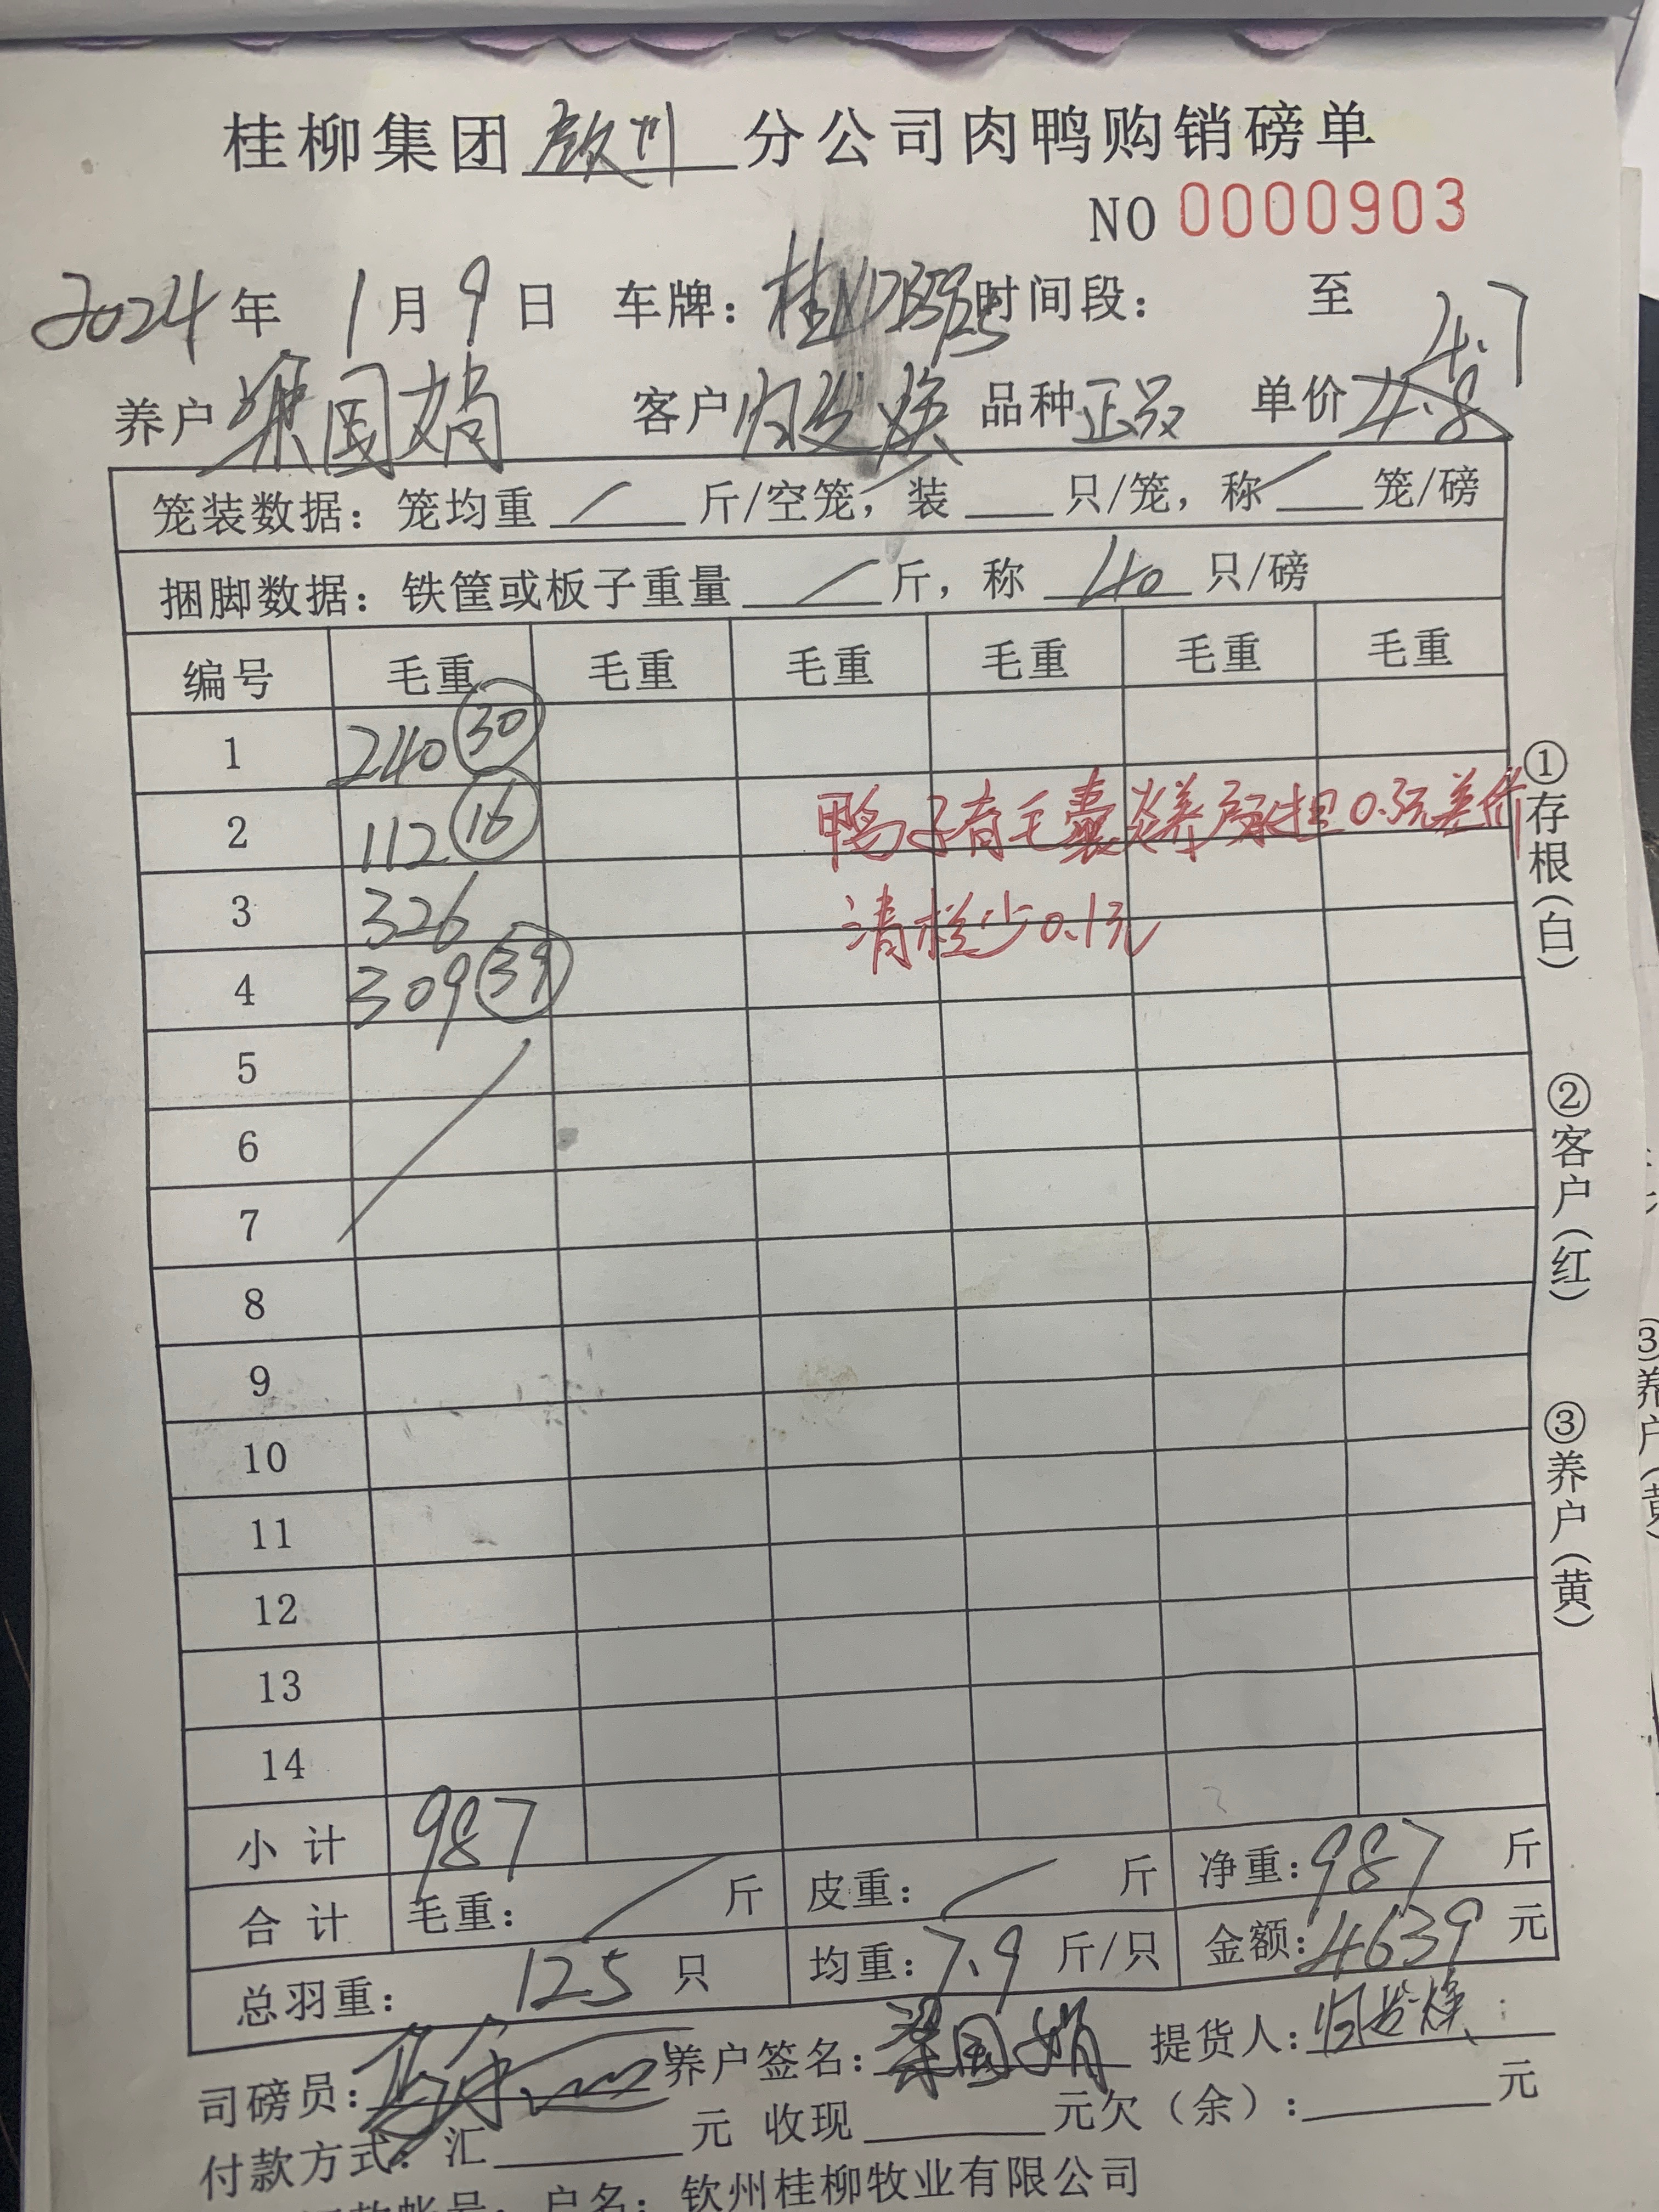 桂柳集团 钦州 分公司肉鸭购销磅单
NO 0000903
2024年 1月 9日 车牌：桂N 时间段： 至
4.7
养户 梁国娟 客户 品种 正品 单价 4.8
笼装数据：笼均重 / 斤/空笼，装 只/笼，称 / 笼/磅
捆脚数据：铁筐或板子重量 / 斤，称 40 只/磅
编号 毛重 毛重 毛重 毛重 毛重 毛重
1 240 30
2 112 16 鸭子有毛囊炎养户承担0.5元差价
3 326 清栏少0.1元
4 309 39
5
6
7
8
9
10
11
12
13
14
小计 987
合计 毛重： / 斤 皮重： / 斤 净重：987 斤
总羽重： 125 只 均重：7.9 斤/只 金额：4639 元
司磅员： 养户签名：梁国娟 提货人：
付款方式：汇 元 收现 元欠（余）： 元
户名：钦州桂柳牧业有限公司
①存根（白）
②客户（红）
③养户（黄）
③养户（黄）